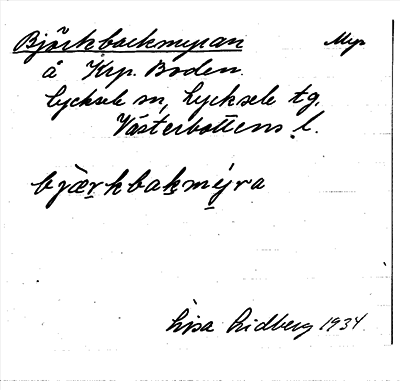 Björkbackmyran Myr
å Krp. Boden.
Lycksele sn, Lycksele tg.
Västerbottens l.
bjærkbakmýra
Lisa Lidberg 1934